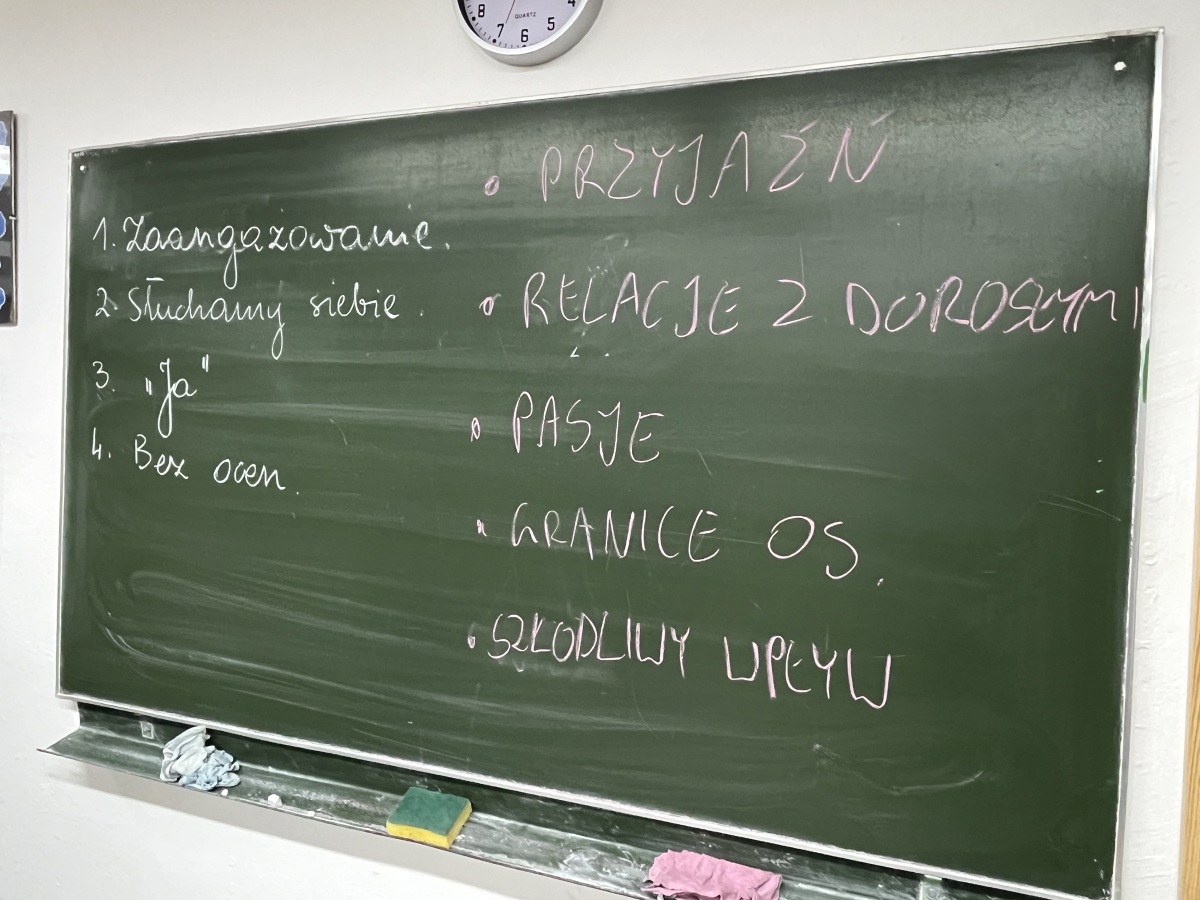 8
7
6
5
4
QUARTZ
1. Zaangażowanie.
2. Słuchamy siebie.
3. „Ja"
4. Bez ocen.
• PRZYJAŹŃ
• RELACJE Z DOROSŁYMI
• PASJE
• GRANICE OS.
• SZKODLIWY WPŁYW